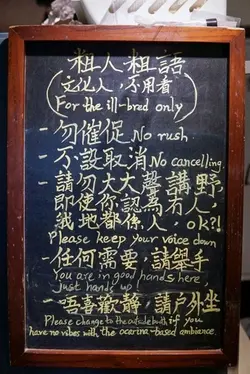 粗人粗語
(文化人，不用看)
(For the ill-bred only)
- 勿催促 No rush.
- 不設取消 No cancelling.
- 請勿大大聲講野,
即使你認為冇人,
我地都係人, ok?!
Please keep your voice down
- 任何需要，請舉手
You are in good hands here,
Just hands up!
- 唔喜歡靜，請戶外坐
Please change to the outside booth if you
have no vibes with the ocarina-based ambiance.